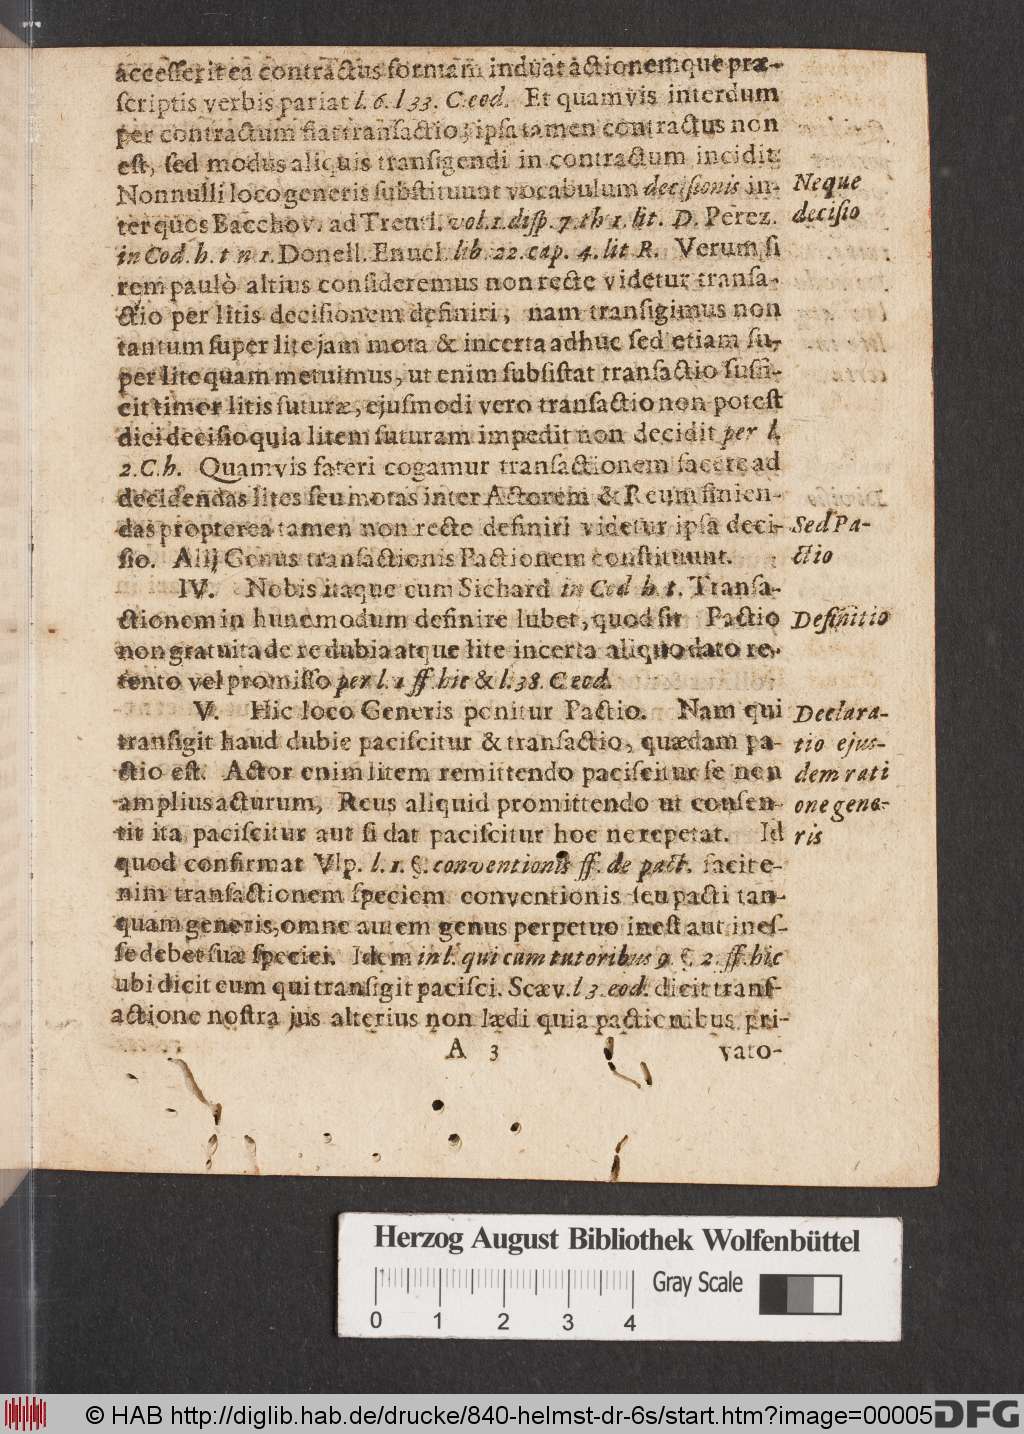 accesserit ea contractus formam induat actionemque præ-
scriptis verbis pariat l. 6. l 33. C. eod. Et quamvis interdum
per contractum fiat transactio; ipsa tamen contractus non
est, sed modus aliquis transigendi in contractum incidit.
Nonnulli loco generis substituunt vocabulum decisionis in-
ter quos Bacchov. ad Treutl. vol. 1. disp. 7. th 1. lit. D. Perez.
in Cod. h. t n 1. Donell. Enucl. lib. 22. cap. 4. lit R. Verum si
rem paulò altius consideremus non recte videtur transa-
ctio per litis decisionem definiri; nam transigimus non
tantum super lite jam mota & incerta adhuc sed etiam su-
per lite quam metuimus, ut enim subsistat transactio suffi-
cit timor litis futuræ, ejusmodi vero transactio non potest
dici decisio quia litem futuram impedit non decidit per l.
2. C. h. Quamvis fateri cogamur transactionem facere ad
decidendas lites seu motas inter Actorem & Reum finien-
das propterea tamen non recte definiri videtur ipsa deci-
sio. Alij Genus transactionis Pactionem constituunt.
IV. Nobis itaque cum Sichard in Cod h. t. Transa-
ctionem in hunc modum definire lubet, quod sit Pactio
non gratuita de re dubia atque lite incerta aliquo dato re-
tento vel promisso per l. 1 ff. hic & l. 38. C eod.
V. Hic loco Generis ponitur Pactio. Nam qui
transigit haud dubie paciscitur & transactio, quædam pa-
ctio est. Actor enim litem remittendo paciscitur se non
amplius acturum, Reus aliquid promittendo ut consen-
tit ita paciscitur aut si dat paciscitur hoc ne repetat. Id
quod confirmat Vlp. l. 1. §. conventionis ff. de pact. facit e-
nim transactionem speciem conventionis seu pacti tan-
quam generis, omne autem genus perpetuo inest aut ines-
se debet suæ speciei. Idem in l. qui cum tutoribus 9 §. 2. ff. hic
ubi dicit eum qui transigit pacisci. Scæv. l 3. eod. dicit trans-
actione nostra jus alterius non lædi quia pactionibus pri-
A 3 vato-
Neque
decisio
Sed Pa-
ctio
Definitio
Declara-
tio ejus-
dem rati
one gene-
ris
Herzog August Bibliothek Wolfenbüttel
Gray Scale
0 1 2 3 4
© HAB http://diglib.hab.de/drucke/840-helmst-dr-6s/start.htm?image=00005
DFG